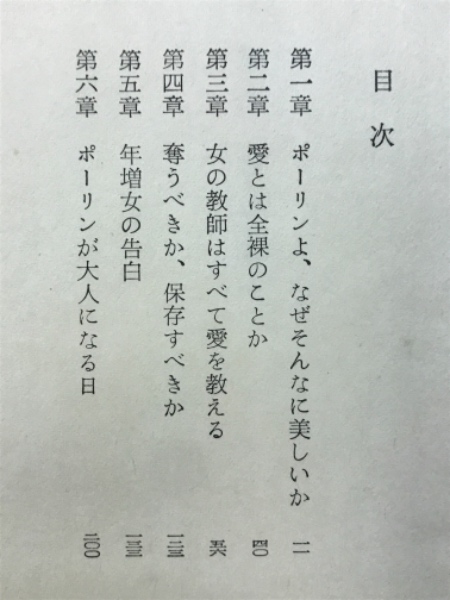 目次
第一章 ポーリンよ、なぜそんなに美しいか 一一
第二章 愛とは全裸のことか 四〇
第三章 女の教師はすべて愛を教える 五六
第四章 奪うべきか、保存すべきか 一二三
第五章 年増女の告白 一三三
第六章 ポーリンが大人になる日 二〇〇